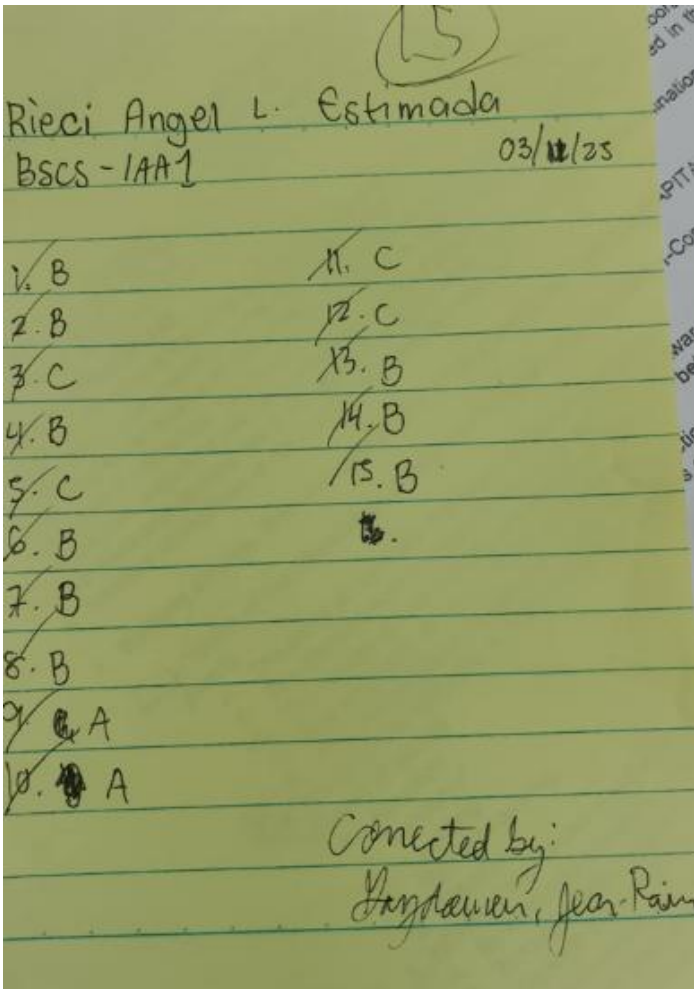 15
Rieci Angel L. Estimada
BSCS - 1AA1
03/11/25
1. B
2. B
3. C
4. B
5. C
6. B
7. B
8. B
9. A
10. A
11. C
12. C
13. B
14. B
15. B
Corrected by:
Jean-Rain